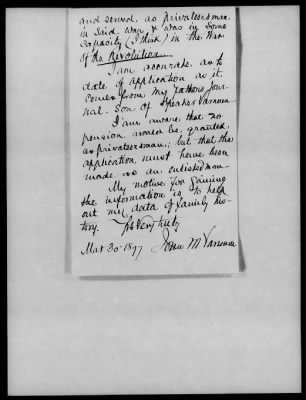 and served as privateersman
in said war & was in some
capacity (I think) in the War
of the Revolution.
I am accurate as to
date of application as it
comes from my fathers Jour-
nal - Son of Speaker Varnum
I'm aware that no
pension would be granted
as privateersman; but that the
application must have been
made as an enlisted man -
My motive for gaining
the information is to help
out my data of family his-
tory.
Very truly
Mar 30-1897 John M Varnum